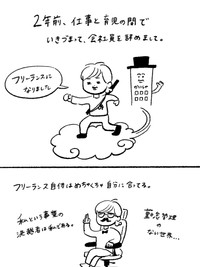 2年前、仕事と育児の間で
いきづまって、会社員を辞めまして。
フリーランスに
なりました
フリーランス自体はめちゃくちゃ自分に合ってる。
私という事業の
決裁者は私である。
勤怠管理の
ない世界…